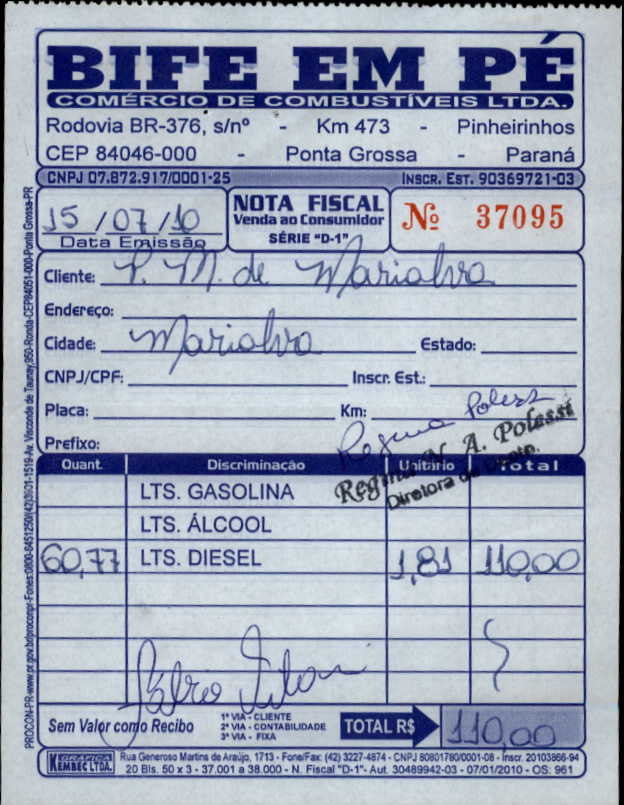 BIFE EM PÉ
COMÉRCIO DE COMBUSTÍVEIS LTDA.
Rodovia BR-376, s/nº - Km 473 - Pinheirinhos
CEP 84046-000 - Ponta Grossa - Paraná
CNPJ 07.872.917/0001-25 INSCR. EST. 90369721-03
15/07/10
Data Emissão
NOTA FISCAL
Venda ao Consumidor
SÉRIE "D-1"
Nº 37095
Cliente: P. M. de Marialva
Endereço:
Cidade: Marialva Estado:
CNPJ/CPF: Inscr. Est.:
Placa: Km:
Prefixo:
Regina Polessi
Regina N. A. Polessi
Diretora de Depto.
Quant. Discriminação Unitário Total
LTS. GASOLINA
LTS. ÁLCOOL
60,77 LTS. DIESEL 1,81 110,00
Sem Valor como Recibo
1ª VIA - CLIENTE
2ª VIA - CONTABILIDADE
3ª VIA - FIXA
TOTAL R$ 110,00
GRÁFICA
KEMBEC LTDA.
Rua Generoso Martins de Araújo, 1713 - Fone/Fax: (42) 3227-4874 - CNPJ 80801780/0001-08 - Inscr. 20103866-94
20 Bls. 50 x 3 - 37.001 a 38.000 - N. Fiscal "D-1"- Aut. 30489942-03 - 07/01/2010 - OS: 961